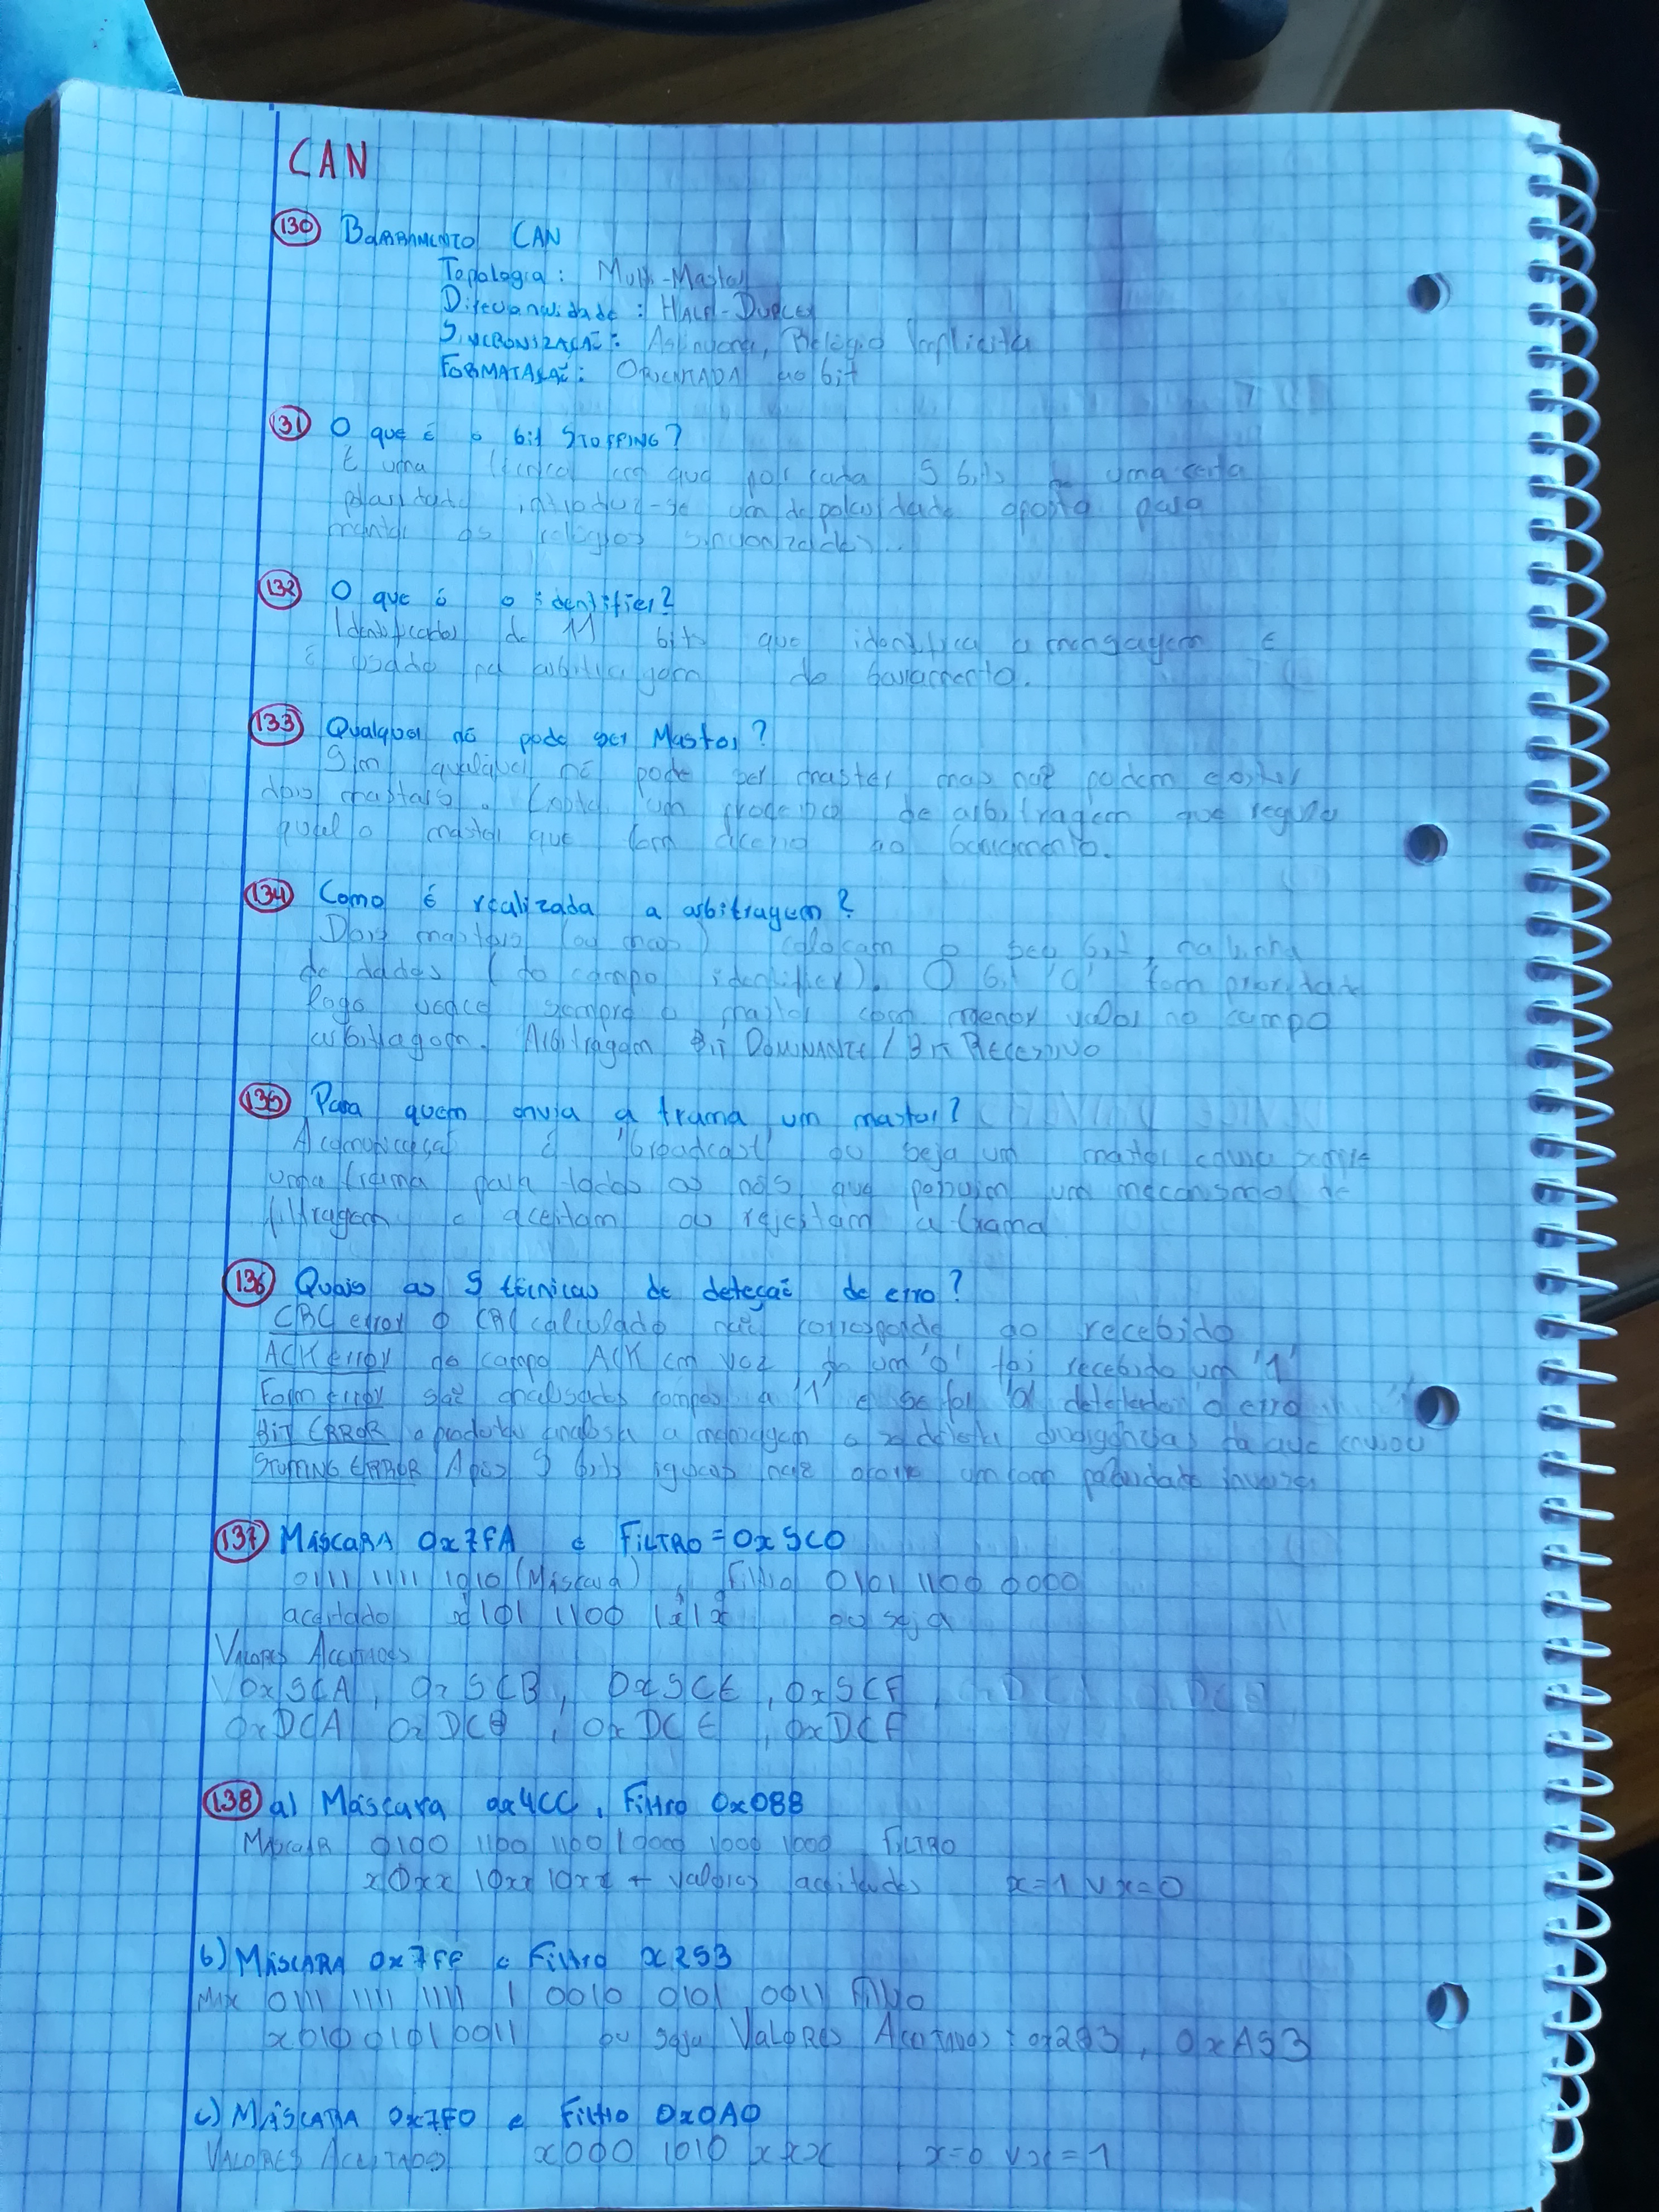 CAN
130 BARRAMENTO CAN
Topologia: Multi-Master
Direcionalidade: HALF-DUPLEX
SINCRONIZAÇÃO: Assíncrona, Relógio Implícito
FORMATAÇÃO: ORIENTADA ao bit
131 O que é o bit STUFFING?
É uma técnica em que por cada 5 bits de uma certa
polaridade introduz-se um de polaridade oposta para
manter os relógios sincronizados...
132 O que é o identifier?
Identificador de 11 bits que identifica a mensagem E
É usado na arbitragem do barramento.
133 Qualquer nó pode ser Master?
Sim qualquer nó pode ser master mas não podem existir
dois masters. Existe um processo de arbitragem que regula
qual o master que tem acesso ao barramento.
134 Como é realizada a arbitragem?
Dois masters (ou mais) colocam o seu bit, na linha
de dados (do campo identifier). O bit '0' tem prioridade
logo vence sempre o master com menor valor no campo
arbitragem. Arbitragem Bit DOMINANTE / Bit RECESSIVO
135 Para quem envia a trama um master?
A comunicação é 'broadcast' ou seja um master envia sempre
uma trama para todos os nós que possuem um mecanismo de
filtragem e aceitam ou rejeitam a trama
136 Quais as 5 técnicas de deteção de erro?
CRC error O CRC calculado não corresponde ao recebido
ACK error do campo ACK em vez de um '0' foi recebido um '1'
Form error são analisados campos a '1' e se for '0' detetado o erro
BIT ERROR o produtor analisa a mensagem e se deteta divergências da que enviou
STUFFING ERROR Após 5 bits iguais não ocorre um com polaridade inversa
137 MÁSCARA 0x7FA e FILTRO = 0x5C0
0111 1111 1010 (Máscara), Filtro 0101 1100 0000
aceitado x101 1100 1x1x ou seja
VALORES ACEITADOS
0x5CA, 0x5CB, 0x5CE, 0x5CF,
0xDCA, 0xDCB, 0xDCE, 0xDCF
138 a) Máscara 0x4CC, Filtro 0x088
MÁSCARA 0100 1100 1100 | 0000 1000 1000 FILTRO
x0xx 10xx 10xx + valores aceitados x=1 v x=0
b) MÁSCARA 0x7FF e Filtro x253
0111 1111 1111 | 0010 0101 0011 Filtro
x010 0101 0011 ou seja VALORES ACEITADOS: 0x253, 0xA53
c) MÁSCARA 0x7F0 e Filtro 0x0A0
VALORES ACEITADOS x000 1010 xxxx, x=0 v x=1